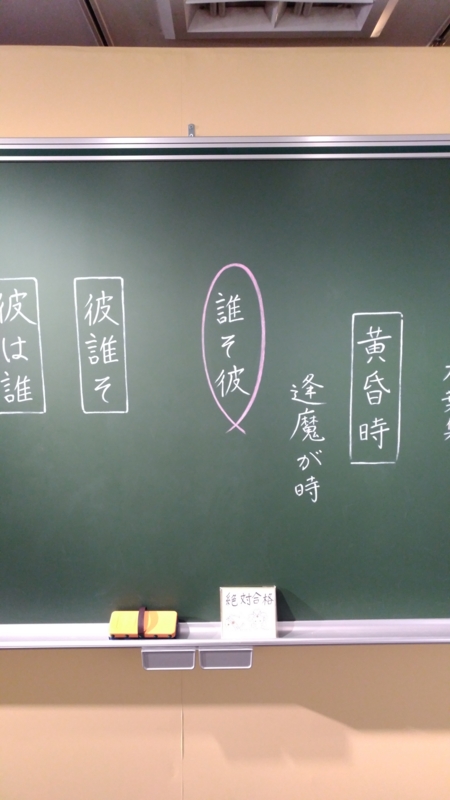 黄昏時
逢魔が時
誰そ彼
彼誰そ
彼は誰
絶対合格